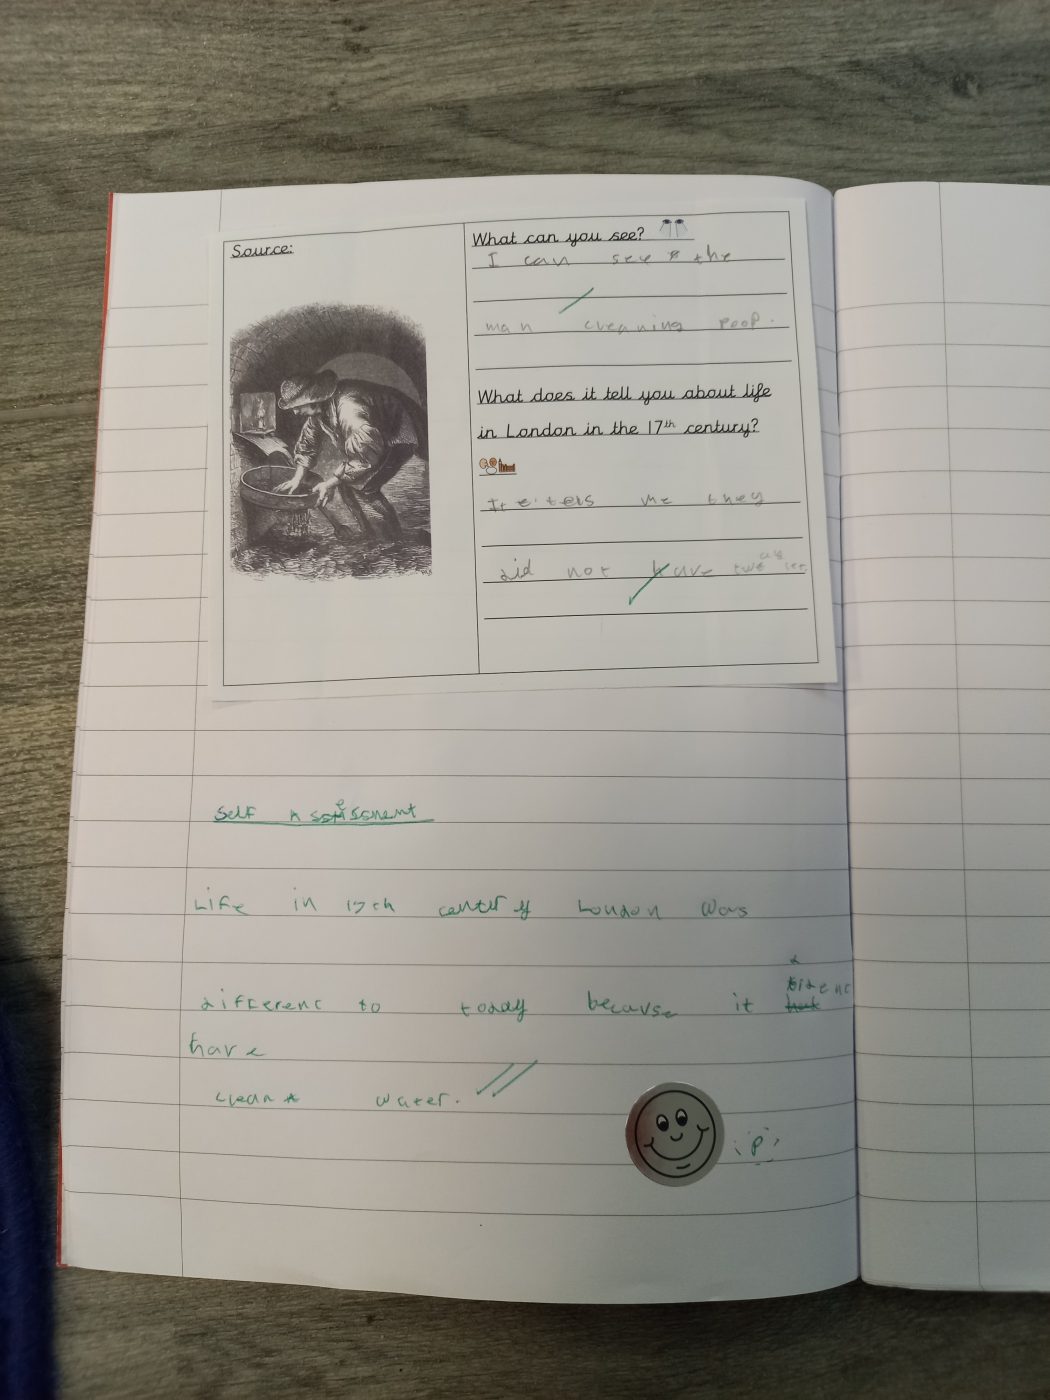 Source:
What can you see?
I can see the
man cleaning poop.
What does it tell you about life
in London in the 17th century?
me they
did not have
Self Assessment
Life in 17th century London was
different to today because it
have
clean water.
P